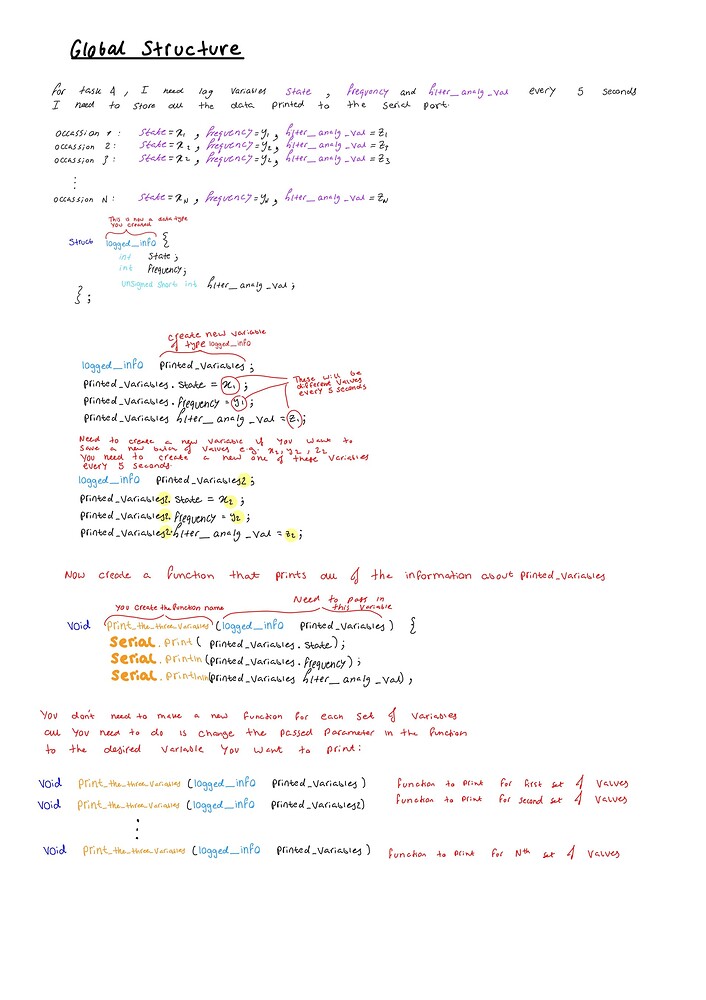 Global Structure
for task 4, I need log variables state, frequency and filter_analg_val every 5 seconds
I need to store all the data printed to the serial port.
occassion 1: state = x₁, frequency = y₁, filter_analg_val = z₁
occassion 2: state = x₂, frequency = y₂, filter_analg_val = z₂
occassion 3: state = x₂, frequency = y₂, filter_analg_val = z₃
⋮
occassion N: state = x_N, frequency = y_N, filter_analg_val = z_N
This is now a data type
you created
Struct logged_info {
int state;
int frequency;
unsigned short int filter_analg_val;
};
create new variable
of type logged_info
logged_info printed_variables;
printed_variables.state = x₁;
printed_variables.frequency = y₁;
printed_variables filter_analg_val = z₁;
These will be
different values
every 5 seconds
Need to create a new variable if you want to
save a new batch of values e.g. x₂, y₂, z₂
you need to create a new one of these variables
every 5 seconds.
logged_info printed_variables2;
printed_variables2.state = x₂;
printed_variables2.frequency = y₂;
printed_variables2.filter_analg_val = z₂;
Now create a function that prints all of the information about printed_variables
you create the function name
Need to pass in
this variable
void print_the_three_variables (logged_info printed_variables) {
Serial.print( printed_variables.state);
Serial.println(printed_variables.frequency);
Serial.println(printed_variables filter_analg_val),
You don't need to make a new function for each set of variables
all you need to do is change the passed parameter in the function
to the desired variable you want to print:
void print_the_three_variables (logged_info printed_variables) function to print for first set of values
void print_the_three_variables (logged_info printed_variables2) function to print for second set of values
⋮
void print_the_three_variables (logged_info printed_variables) function to print for Nth set of values